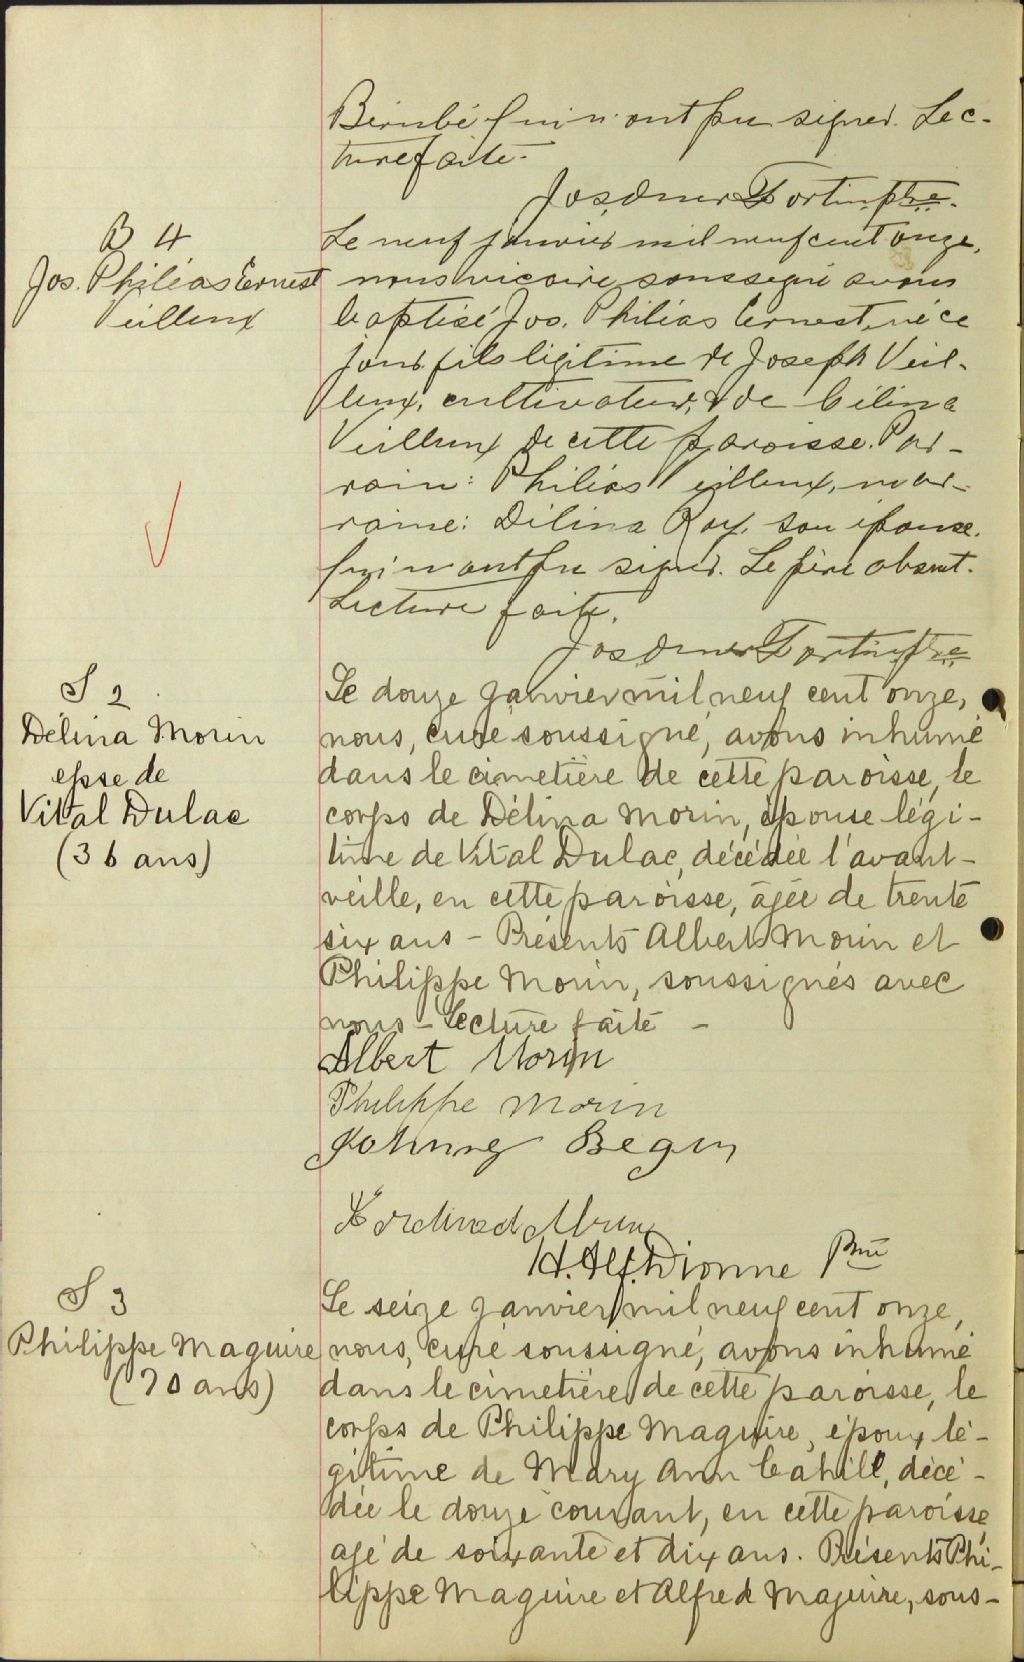 Bérubé qui n'ont pu signer. Lec-
ture faite.
Jos Omer Fortin ptre.
B 4
Jos. Philias Ernest
Veilleux
Le neuf janvier mil neuf cent onze,
nous vicaire soussigné avons
baptisé Jos. Philias Ernest, né ce
jour, fils légitime de Joseph Veil-
leux, cultivateur, & de Célina
Veilleux de cette paroisse. Par-
rain: Philias Veilleux, mar-
raine: Délina Roy, son épouse.
qui n'ont pu signer. Le père absent.
Lecture faite.
Jos Omer Fortin ptre
S 2
Délina Morin
epse de
Vital Dulac
(36 ans)
Le douze Janvier mil neuf cent onze,
nous, curé soussigné, avons inhumé
dans le cimetière de cette paroisse, le
corps de Délina Morin, épouse légi-
time de Vital Dulac, décédée l'avant-
veille, en cette paroisse, âgée de trente
six ans - Présents Albert Morin et
Philippe Morin, soussignés avec
nous - Lecture faite -
Albert Morin
Philippe Morin
Johnny Begin
Ferdinand Morin
H. Alf. Dionne Ptre
S 3
Philippe Maguire
(70 ans)
Le seize Janvier mil neuf cent onze,
nous, curé soussigné, avons inhumé
dans le cimetière de cette paroisse, le
corps de Philippe Maguire, époux lé-
gitime de Mary Ann Cahill, décé-
dée le douze courant, en cette paroisse
agé de soixante et dix ans. Présents Phi-
lippe Maguire et Alfred Maguire, sous-